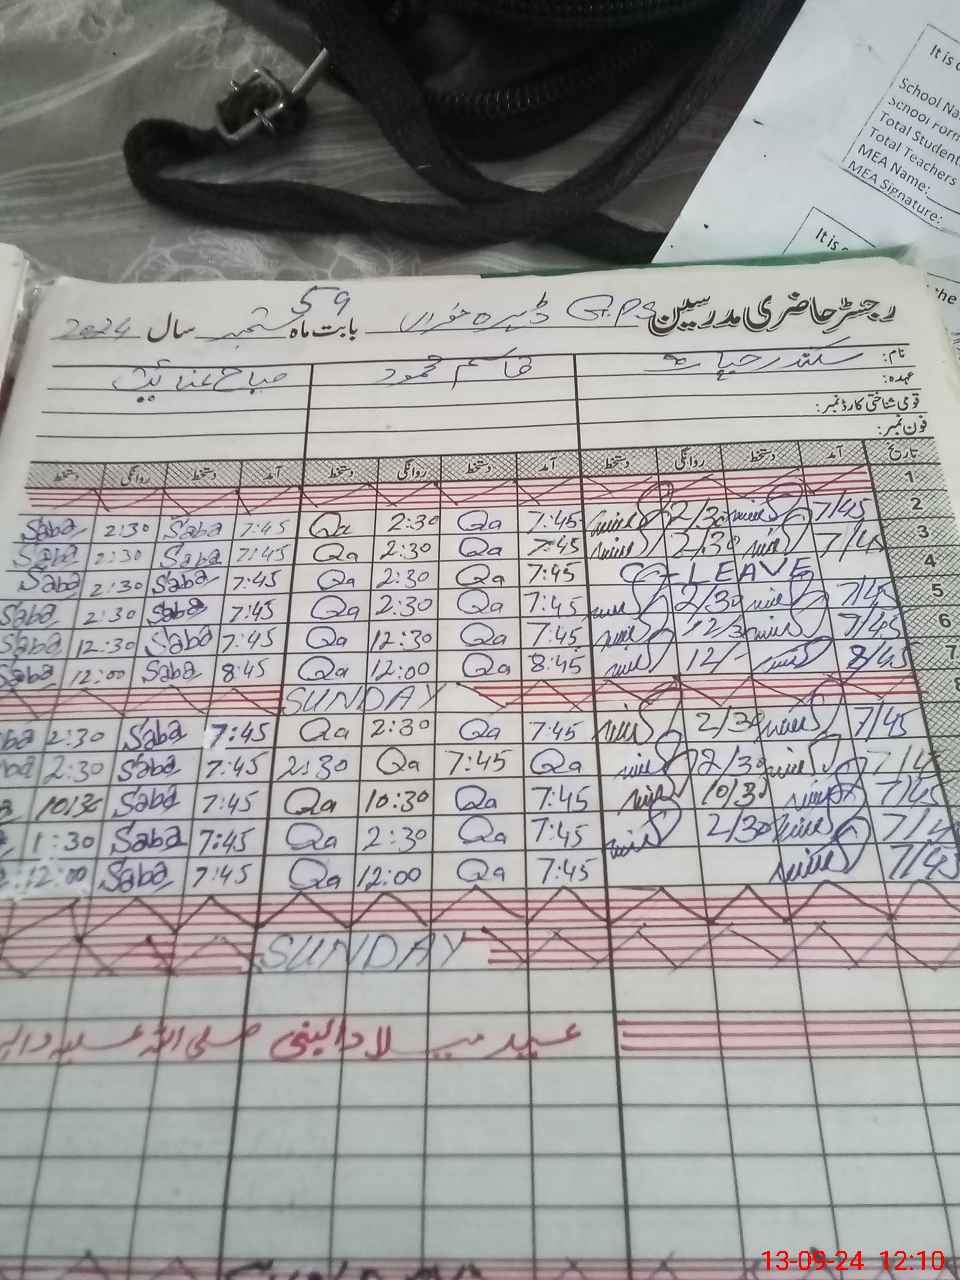 It is
School Na
School Form
Total Student
Total Teachers
MEA Name:
MEA Signature:
It is
the
رجسٹر حاضری مدرسین G.P.S ڈیرہ بابت ماہ ستمبر 9 سال 2024
نام: سکندر حیات قاسم محمود صباح عنائیت
عہدہ:
قومی شناختی کارڈ نمبر:
فون نمبر:
تاریخ آمد دستخط روانگی دستخط آمد دستخط روانگی دستخط آمد دستخط روانگی دستخط
1
Saba 2:30 Saba 7:45 Qa 2:30 Qa 7:45 2/30 7/45 2
Saba 2:30 Saba 7:45 Qa 2:30 Qa 7:45 2/30 7/45 3
Saba 2:30 Saba 7:45 Qa 2:30 Qa 7:45 C-LEAVE 4
Saba 2:30 Saba 7:45 Qa 2:30 Qa 7:45 2/30 7/45 5
Saba 12:30 Saba 7:45 Qa 12:30 Qa 7:45 12/30 7/45 6
Saba 12:00 Saba 8:45 Qa 12:00 Qa 8:45 12/- 8/45 7
SUNDAY 8
ba 2:30 Saba 7:45 Qa 2:30 Qa 7:45 2/30 7/45
2:30 Saba 7:45 2:30 Qa 7:45 Qa 2/30 7/4
10/30 Saba 7:45 Qa 10:30 Qa 7:45 10/30 7/45
1:30 Saba 7:45 Qa 2:30 Qa 7:45 2/30 7/4
12:00 Saba 7:45 Qa 12:00 Qa 7:45 7/45
SUNDAY
عید میلادالنبی صلی اللہ علیہ
13-09-24 12:10